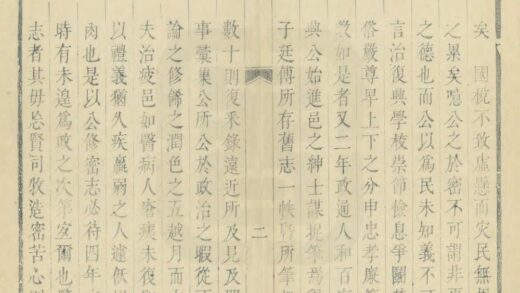 矣　國稅不致虛懸而災民無
之累矣噫公之於密不可謂非
之德也而公以爲民未如義不
言治復興學校崇節儉息爭鬪
俗嚴尊卑上下之分申忠孝廉
教如是者又二年政通人和百
與公始進邑之紳士謀
子廷傅所存舊志一帙
二
數十則復采錄遠近所及見及
事彙集公所公於政治之暇從
論之修餙之潤色之五越月而
夫治疲邑如醫病人瘡痍未復
以禮義猶久疾羸弱之人遽
肉也是以公修密志必待四年
時有未遑爲政之次第爾也
志者其毋忘賢司牧造密苦心